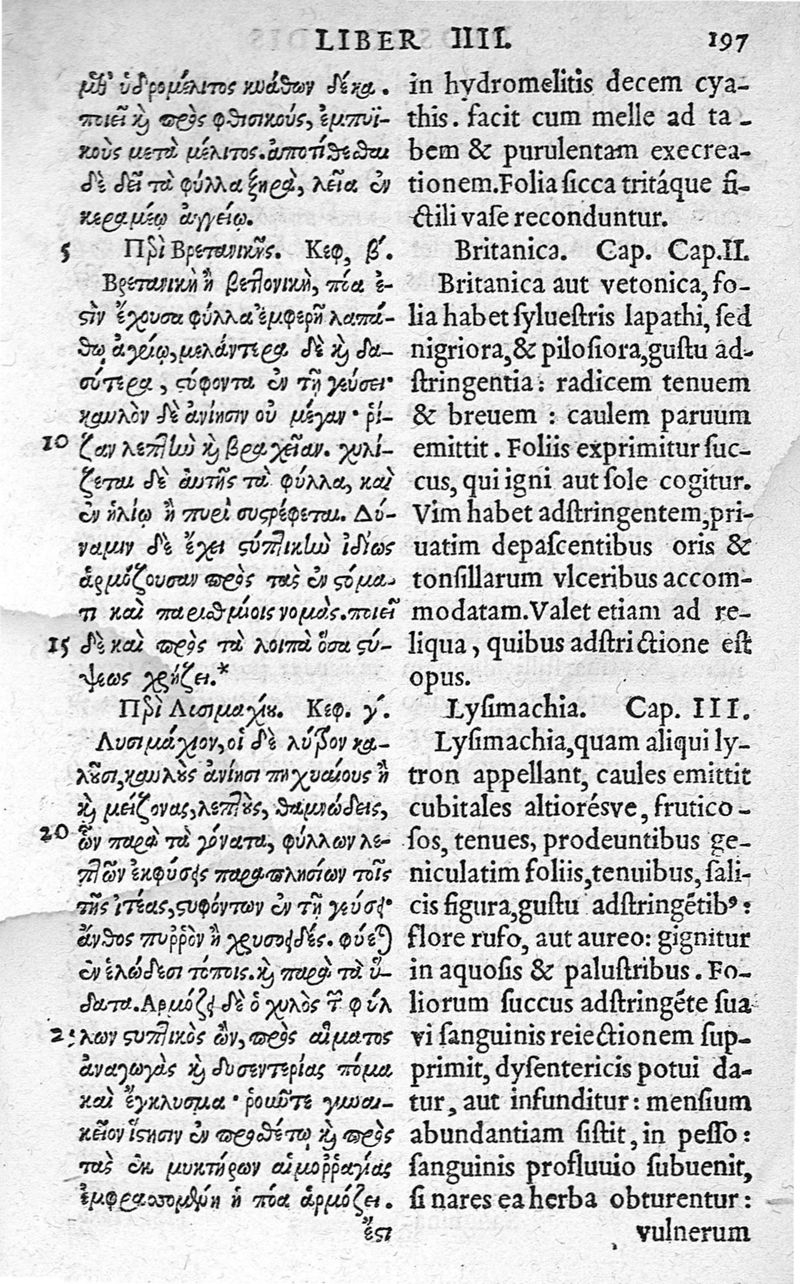 LIBER IIII. 197
μεθ' ὑδρομέλιτος κυάθων δέκα.
ποιεῖ καὶ πρὸς φθισικούς, ἐμπυϊ-
κοὺς μετὰ μέλιτος. ἀποτίθεσθαι
δὲ δεῖ τὰ φύλλα ξηρὰ, λεῖα ἐν
κεραμέῳ ἀγγείῳ.
5 Περὶ Βρετανικῆς. Κεφ, β΄.
Βρετανικὴ ἢ βετλονικὴ, πόα ἐ-
ςὶν ἔχουσα φύλλα ἐμφερῆ λαπά-
θῳ ἀγρίῳ, μελάντερα δὲ καὶ δα-
σύτερα, ςύφοντα ἐν τῇ γεύσει·
καυλὸν δὲ ἀνίησιν οὐ μέγαν· ῥί-
10 ζαν λεπτὴν καὶ βραχεῖαν. χυλί-
ζεται δὲ αὐτῆς τὰ φύλλα, καὶ
ἐν ἡλίῳ ἢ πυρὶ συςρέφεται. Δύ-
ναμιν δὲ ἔχει ςυπτικὴν ἰδίως
ἁρμόζουσαν πρὸς τὰς ἐν ςόμα-
τι καὶ παρισθμίοις νομάς. ποιεῖ
15 δὲ καὶ πρὸς τὰ λοιπὰ ὅσα ςύ-
ψεως χρῄζει.*
Περὶ Λυσιμαχίου. Κεφ. γ΄.
Λυσιμάχιον, οἱ δὲ λύτρον κα-
λοῦσι, καυλοὺς ἀνίησι πηχυαίους ἢ
καὶ μείζονας, λεπτοὺς, θαμνώδεις,
20 ὧν παρὰ τὰ γόνατα, φύλλων λε-
πτῶν ἐκφύσεις παραπλησίων τοῖς
τῆς ἰτέας, ςυφόντων ἐν τῇ γεύσει·
ἄνθος πυῤῥὸν ἢ χρυσοειδές. φύεται
ἐν ἑλώδεσι τόποις. καὶ παρὰ τὰ ὕ-
δατα. Αρμόζει δὲ ὁ χυλὸς τῶν φύλ
25 λων ςυπτικὸς ὢν, πρὸς αἵματος
ἀναγωγὰς καὶ δυσεντερίας πόμα
καὶ ἔγκλυσμα· ῥοῦν τε γυναι-
κεῖον ἵςησιν ἐν προσθέτῳ καὶ πρὸς
τὰς ἐκ μυκτήρων αἱμοῤῥαγίας
ἐμφρασσομένη ἡ πόα ἁρμόζει.
ἔςι
in hydromelitis decem cya-
this. facit cum melle ad ta-
bem & purulentam execrea-
tionem. Folia sicca tritáque fi-
ctili vase reconduntur.
Britanica. Cap. Cap. II.
Britanica aut vetonica, fo-
lia habet syluestris lapathi, sed
nigriora, & pilosiora, gustu ad-
stringentia: radicem tenuem
& breuem: caulem paruum
emittit. Foliis exprimitur suc-
cus, qui igni aut sole cogitur.
Vim habet adstringentem, pri-
uatim depascentibus oris &
tonsillarum vlceribus accom-
modatam. Valet etiam ad re-
liqua, quibus adstrictione est
opus.
Lysimachia. Cap. III.
Lysimachia, quam aliqui ly-
tron appellant, caules emittit
cubitales altiorésve, frutico-
sos, tenues, prodeuntibus ge-
niculatim foliis, tenuibus, sali-
cis figura, gustu adstringētibꝰ:
flore rufo, aut aureo: gignitur
in aquosis & palustribus. Fo-
liorum succus adstringēte sua
vi sanguinis reiectionem sup-
primit, dysentericis potui da-
tur, aut infunditur: mensium
abundantiam sistit, in pesso:
sanguinis profluuio subuenit,
si nares ea herba obturentur:
vulnerum